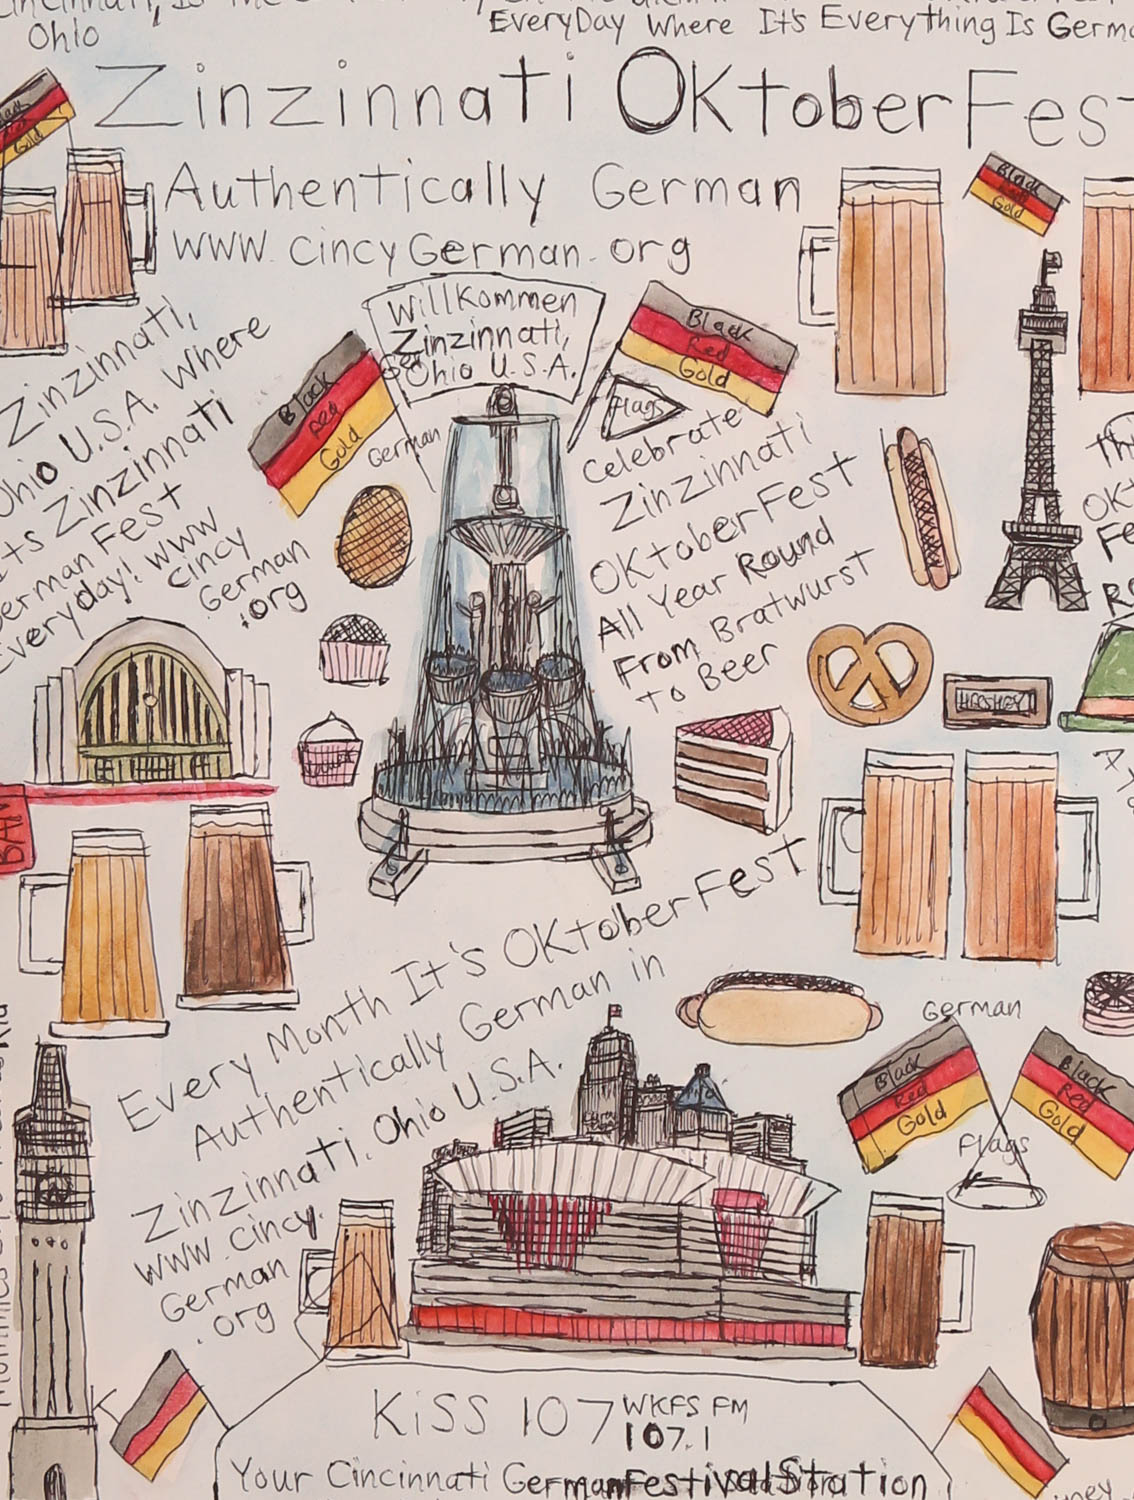 Ohio
EveryDay Where It's Everything Is
Zinzinnati OktoberFest
Authentically German
www.cincyGerman.org
Black
Red
Gold
Black
Red
Gold
Willkommen
Zinzinnati,
Ohio U.S.A.
Black
Red
Gold
German
Black
Red
Gold
Flags
Zinzinnati,
Ohio U.S.A. Where
It's Zinzinnati
German Fest
Everyday! www
cincy
German
.org
Celebrate
Zinzinnati
OktoberFest
All Year Round
From Bratwurst
to Beer
HERSHEY
BAN
Every Month It's OktoberFest
Authentically German in
Zinzinnati, Ohio U.S.A.
www.cincy.
German
.org
German
Black
Red
Gold
Black
Red
Gold
Flags
KiSS 107 WKFS FM
107.1
Your Cincinnati German Festival Station